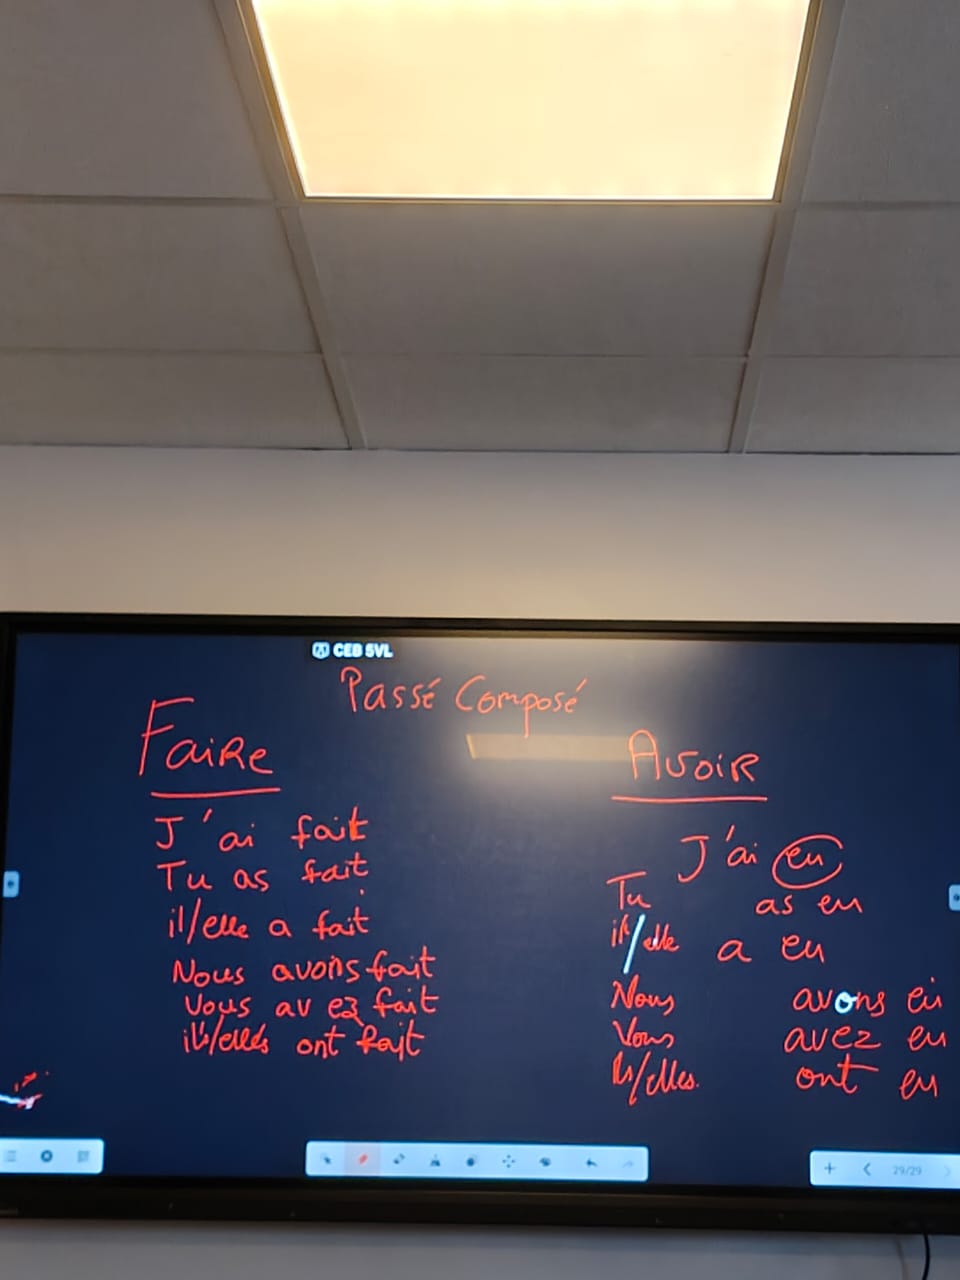 CEB 5VL
Passé Composé
Faire
J'ai fait
Tu as fait
il/elle a fait
Nous avons fait
Vous avez fait
ils/elles ont fait
Avoir
J'ai eu
Tu as eu
il/elle a eu
Nous avons eu
Vous avez eu
ils/elles. ont eu
29/29